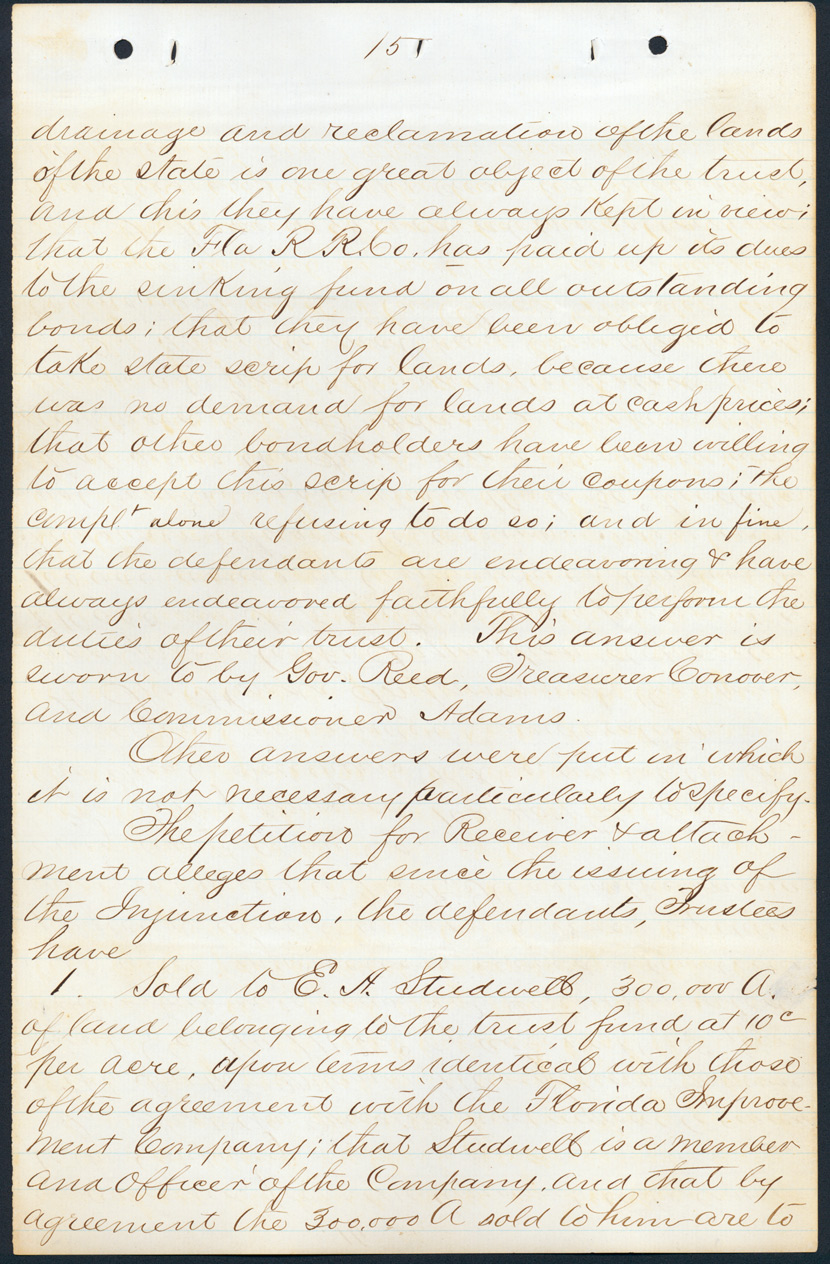 15
drainage and reclamation of the lands
of the state is one great object of the trust,
and this they have always kept in view;
that the Fla R R. Co. has paid up its dues
to the sinking fund on all outstanding
bonds; that they have been obliged to
take state scrip for lands, because there
was no demand for lands at cash prices;
that other bondholders have been willing
to accept this scrip for their coupons; the
complt alone refusing to do so; and in fine,
that the defendants are endeavoring & have
always endeavored faithfully to perform the
duties of their trust. This answer is
sworn to by Gov. Reed, Treasurer Conover,
and Commissioner Adams.
Other answers were put in which
it is not necessary particularly to specify.
The petition for Receiver & attach-
ment alleges that since the issuing of
the Injunction, the defendants, Trustees
have
1. Sold to E. A. Studwell, 300,000 A.
of land belonging to the trust fund at 10c
per acre, upon terms identical with those
of the agreement with the Florida Improve-
ment Company; that Studwell is a member
and Officer of the Company, and that by
agreement the 300,000 A sold to him are to